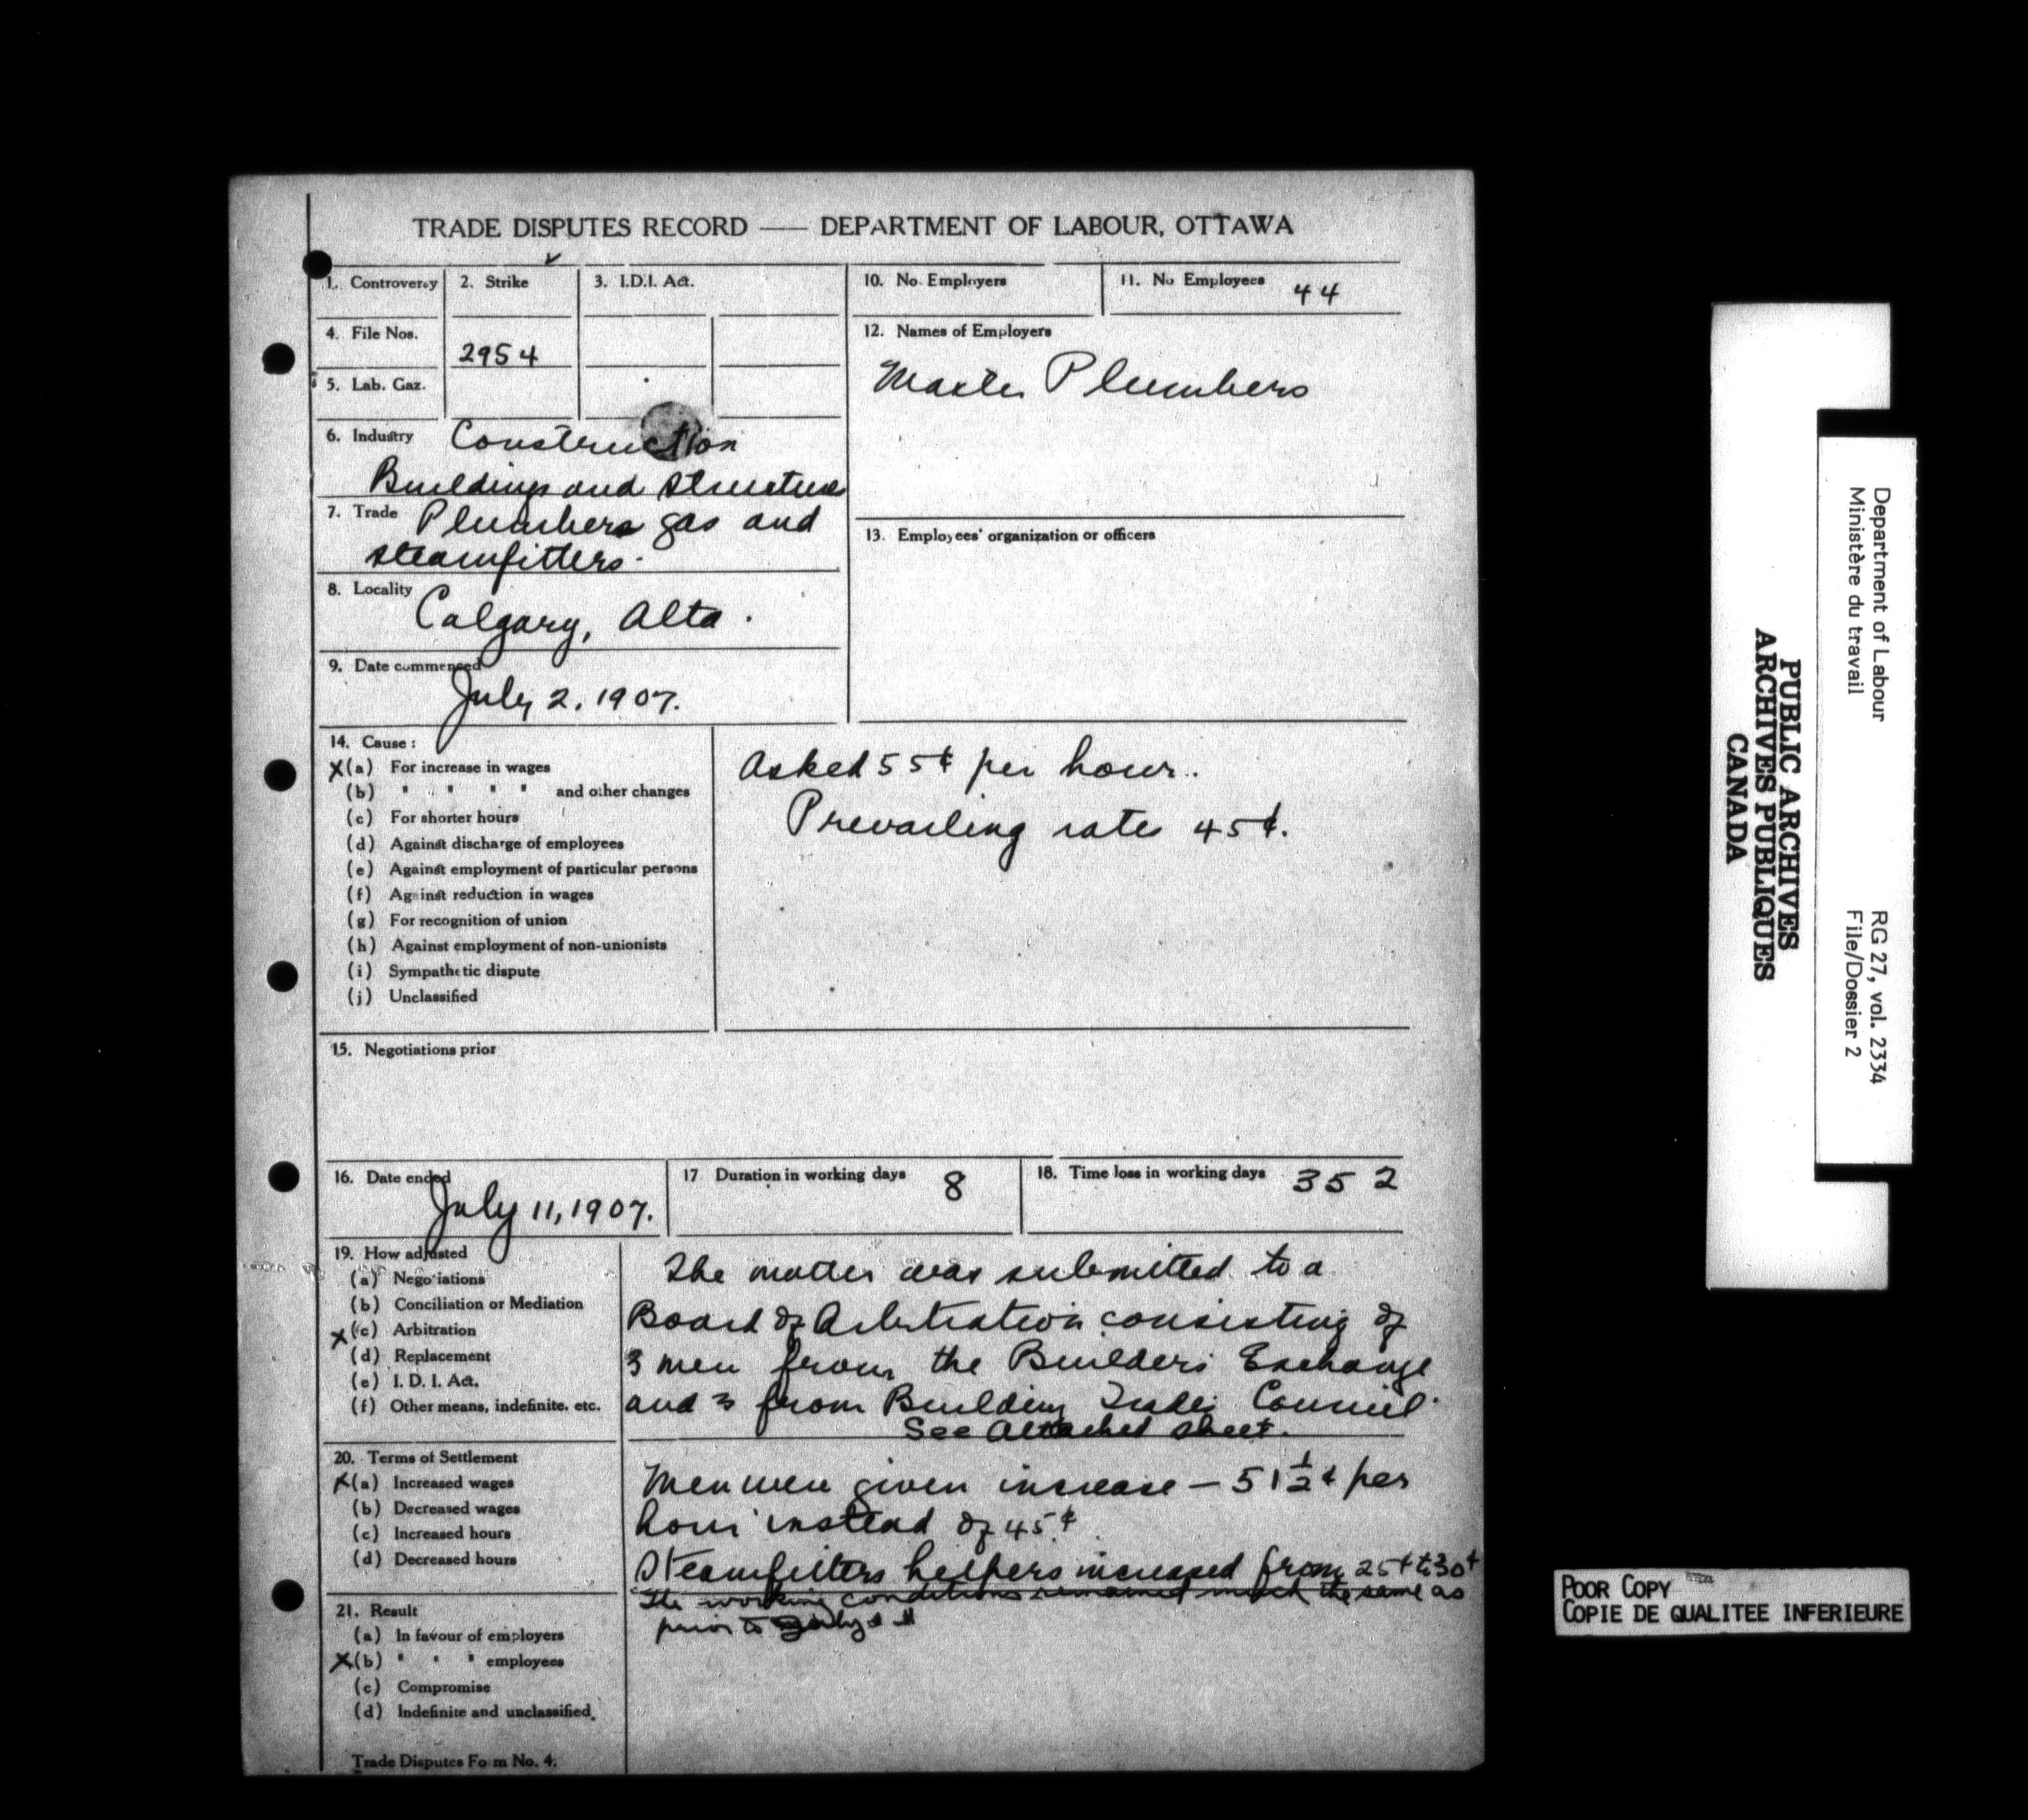 TRADE DISPUTES RECORD —— DEPARTMENT OF LABOUR, OTTAWA
1. Controversy
2. Strike ✓
3. I.D.I. Act.
10. No. Employers
11. No Employees 44
4. File Nos.
2954
5. Lab. Gaz.
12. Names of Employers
Master Plumbers
6. Industry Construction
Buildings and structures
7. Trade Plumbers gas and
steamfitters.
8. Locality Calgary, Alta.
9. Date commenced
July 2, 1907.
13. Employees' organization or officers
14. Cause:
X (a) For increase in wages
(b) " " " " and other changes
(c) For shorter hours
(d) Against discharge of employees
(e) Against employment of particular persons
(f) Against reduction in wages
(g) For recognition of union
(h) Against employment of non-unionists
(i) Sympathetic dispute
(j) Unclassified
Asked 55¢ per hour.
Prevailing rate 45¢.
15. Negotiations prior
16. Date ended
July 11, 1907.
17 Duration in working days 8
18. Time loss in working days 352
19. How adjusted
(a) Negotiations
(b) Conciliation or Mediation
X (c) Arbitration
(d) Replacement
(e) I. D. I. Act.
(f) Other means, indefinite, etc.
The matter was submitted to a
Board of Arbitration consisting of
3 men from the Builders' Exchange
and 3 from Building Trades Council.
See Attached sheet.
20. Terms of Settlement
X (a) Increased wages
(b) Decreased wages
(c) Increased hours
(d) Decreased hours
Men were given increase — 51 1/2 ¢ per
hour instead of 45¢
Steamfitters helpers increased from 25¢ to 30¢
The working conditions remained much the same as
prior to July
21. Result
(a) In favour of employers
X (b) " " " employees
(c) Compromise
(d) Indefinite and unclassified.
Trade Disputes Form No. 4.
Department of Labour
Ministère du travail
RG 27, vol. 2334
File/Dossier 2
PUBLIC ARCHIVES
ARCHIVES PUBLIQUES
CANADA
POOR COPY
COPIE DE QUALITEE INFERIEURE